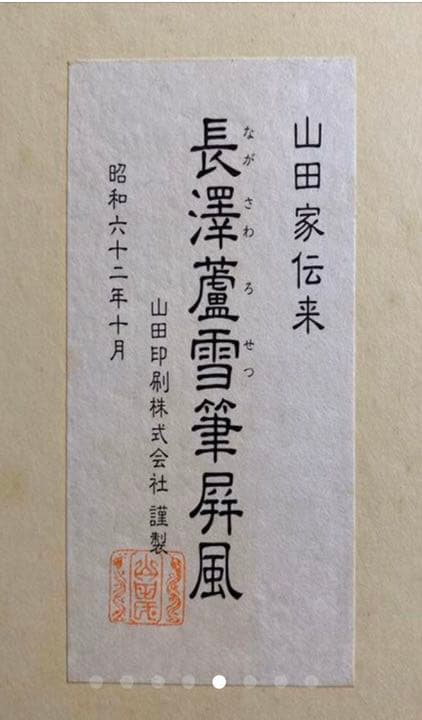 山田家伝来
長澤蘆雪筆屏風
ながさわろせつ
山田印刷株式会社 謹製
昭和六十二年十月
山田氏